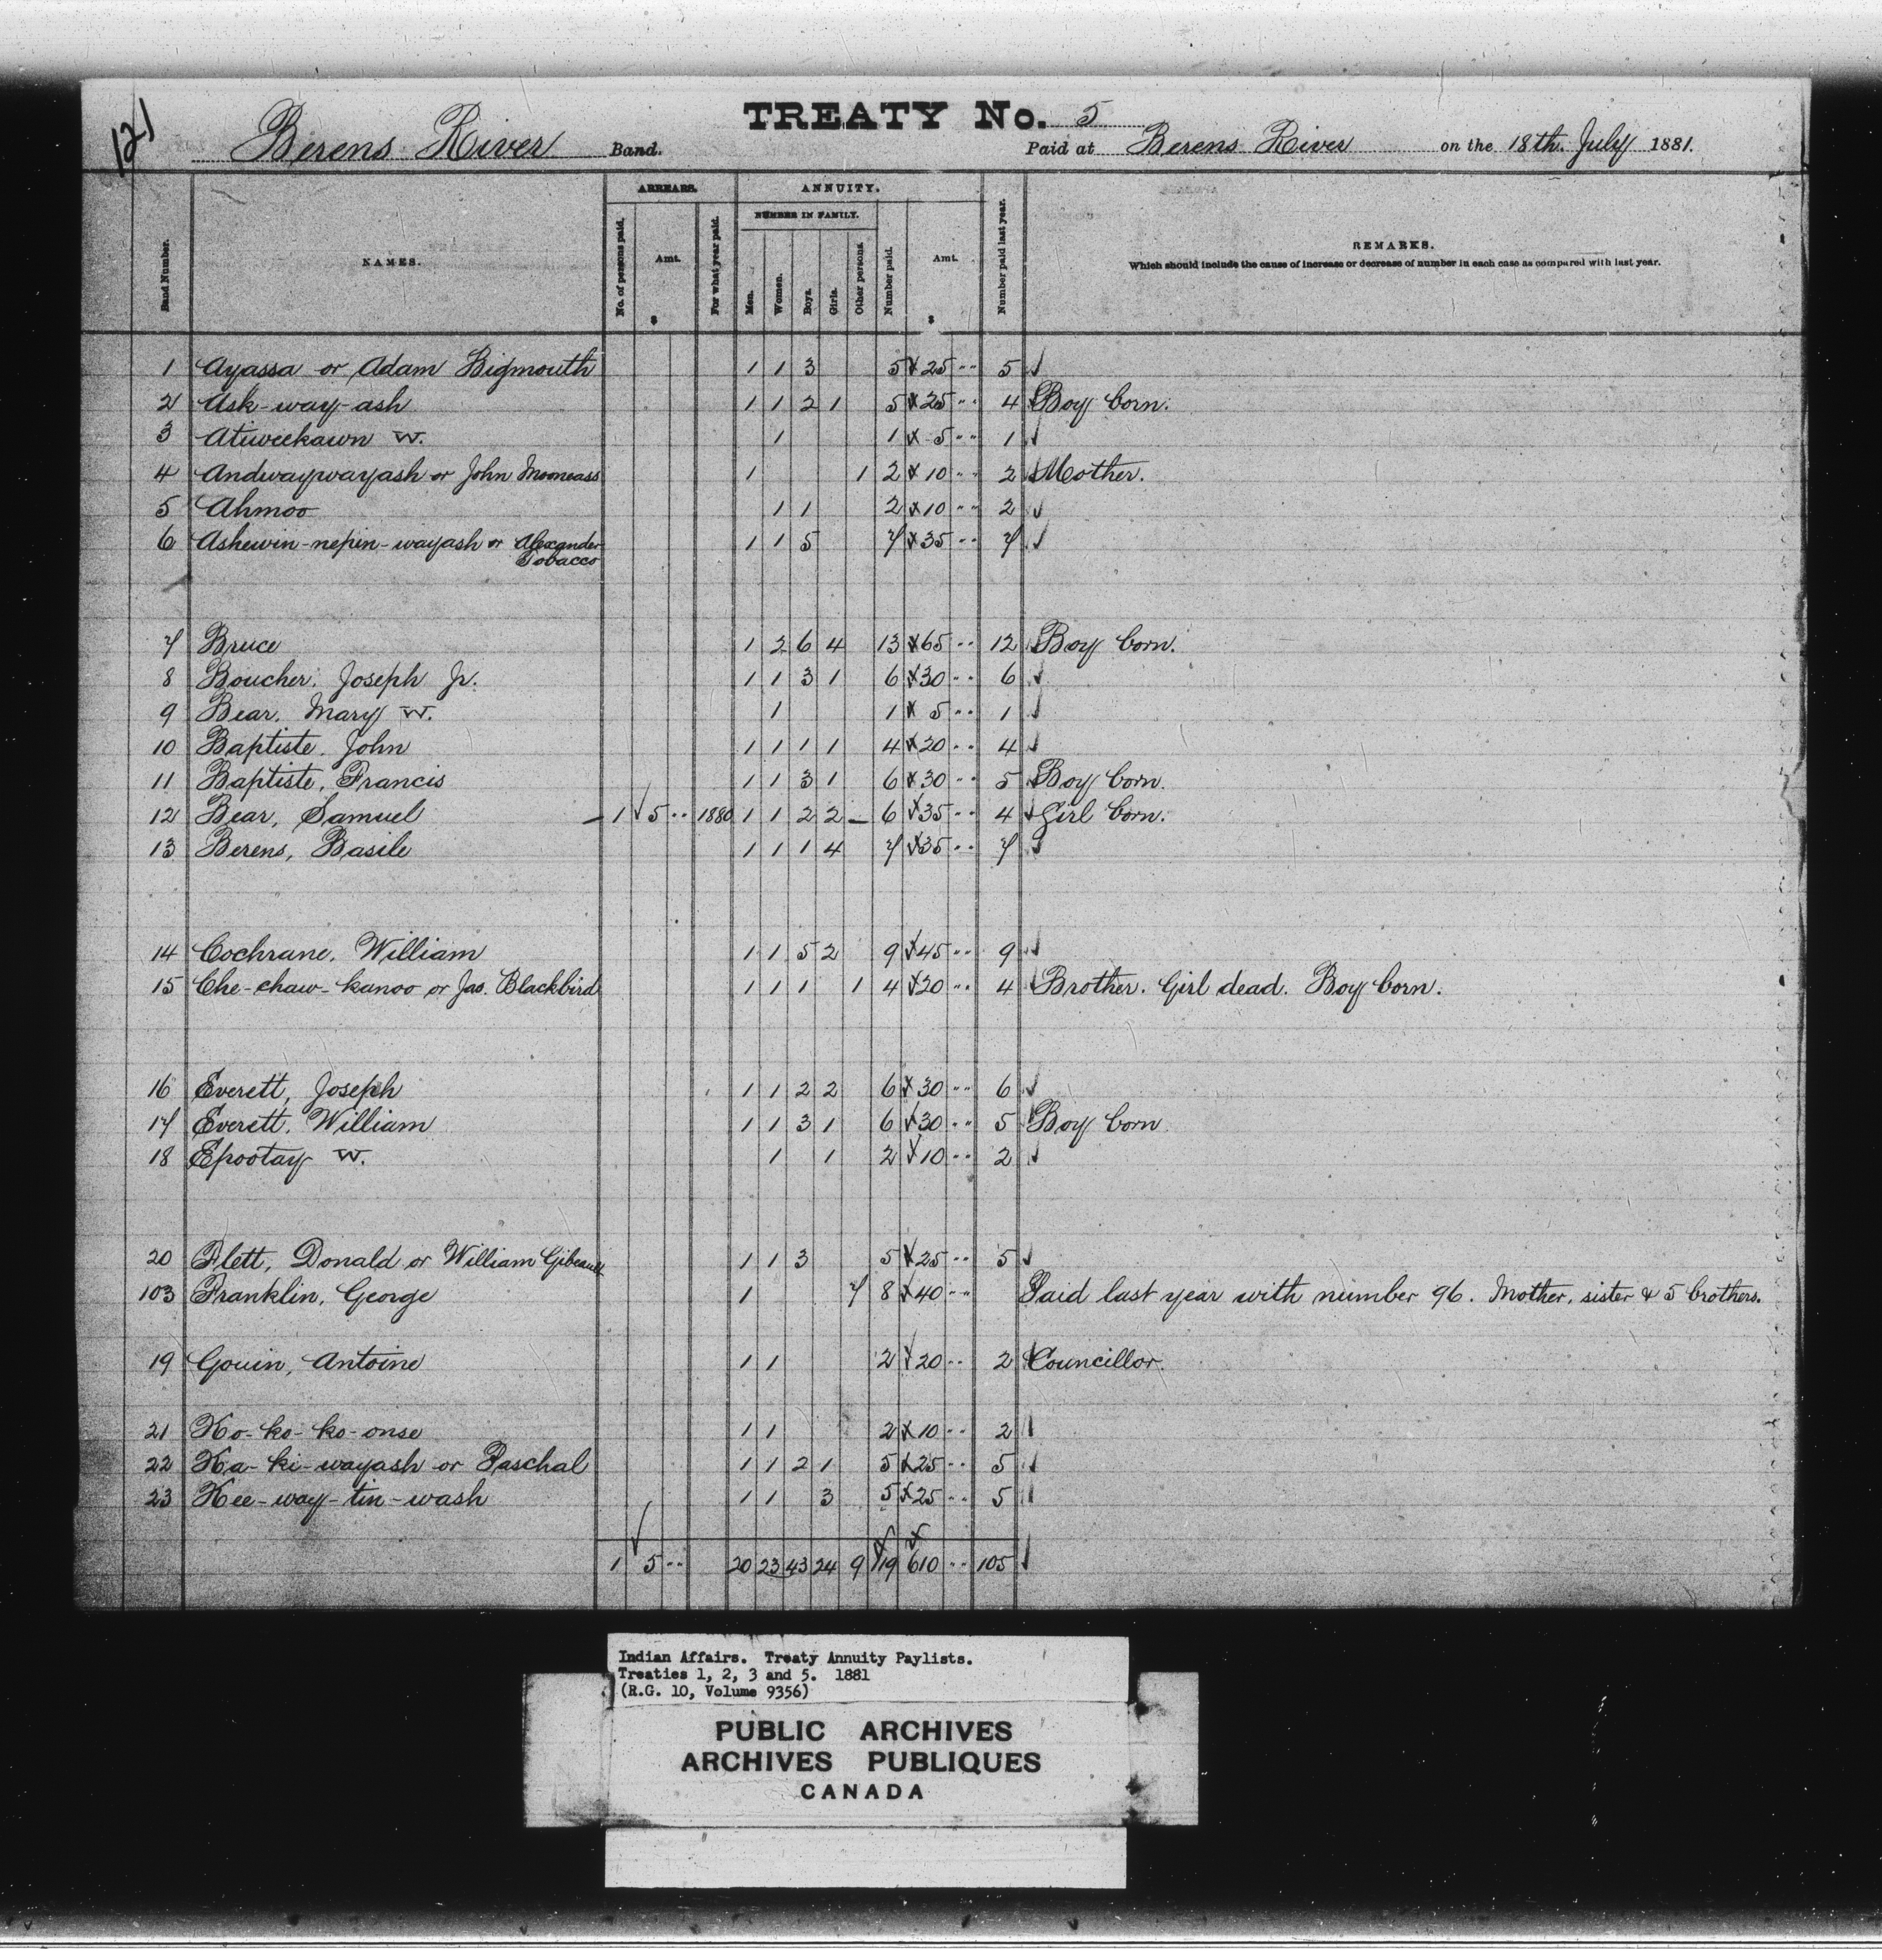 121
TREATY No. 5
Berens River Band. Paid at Berens River on the 18th. July 1881.
ARREARS. ANNUITY.
NUMBER IN FAMILY.
Band Number. NAMES. No. of persons paid. Amt. $ For what year paid. Men. Women. Boys. Girls. Other persons. Number paid. Amt. $ Number paid last year. REMARKS.
Which should include the cause of increase or decrease of number in each case as compared with last year.
1 Ayassa or Adam Bigmouth 1 1 3 5 25 " 5
2 Ask-way-ash 1 1 2 1 5 25 " 4 Boy born.
3 Atiweekawn W. 1 1 5 " 1
4 Andwaywayash or John Mooneass 1 1 2 10 " 2 Mother.
5 Ahmoo 1 1 2 10 " 2
6 Ashewin-nepin-wayash or Alexander 1 1 5 7 35 " 7
Tobacco
7 Bruce 1 2 6 4 13 65 " 12 Boy born.
8 Boucher. Joseph Jr. 1 1 3 1 6 30 " 6
9 Bear. Mary W. 1 1 5 " 1
10 Baptiste. John 1 1 1 1 4 20 " 4
11 Baptiste, Francis 1 1 3 1 6 30 " 5 Boy born.
12 Bear, Samuel – 1 5 " 1880 1 1 2 2 – 6 35 " 4 Girl born.
13 Berens, Basile 1 1 1 4 7 35 " 7
14 Cochrane. William 1 1 5 2 9 45 " 9
15 Che-chaw-kanoo or Jas. Blackbird 1 1 1 1 4 20 " 4 Brother. Girl dead. Boy born.
16 Everett, Joseph 1 1 2 2 6 30 " 6
17 Everett. William 1 1 3 1 6 30 " 5 Boy born
18 Epootay W. 1 1 2 10 " 2
20 Flett, Donald or William Gibeault 1 1 3 5 25 " 5
103 Franklin, George 1 7 8 40 " Paid last year with number 96. Mother, sister & 5 brothers.
19 Gouin, Antoine 1 1 2 20 " 2 Councillor.
21 Ko-ko-ko-onse 1 1 2 10 " 2
22 Ka-ki-wayash or Paschal 1 1 2 1 5 25 " 5
23 Kee-way-tin-wash 1 1 3 5 25 " 5
1 5 " 20 23 43 24 9 119 610 " 105
Indian Affairs. Treaty Annuity Paylists.
Treaties 1, 2, 3 and 5. 1881
(R.G. 10, Volume 9356)
PUBLIC ARCHIVES
ARCHIVES PUBLIQUES
CANADA